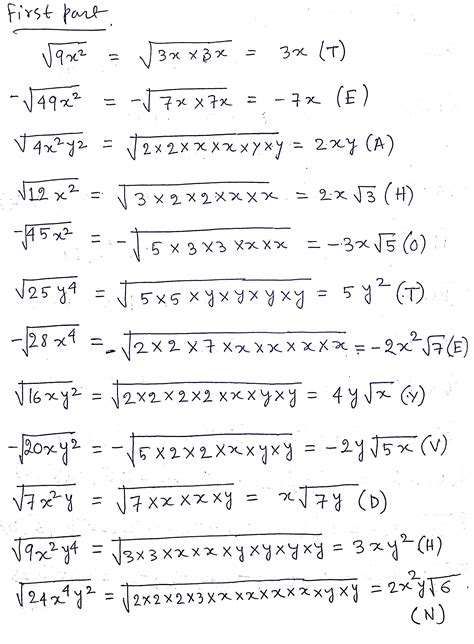 First part.
√9x² = √3x × 3x = 3x (T)
-√49x² = -√7x × 7x = -7x (E)
√4x²y² = √2×2×x×x×y×y = 2xy (A)
√12x² = √3×2×2×x×x = 2x√3 (H)
-√45x² = -√5×3×3×x×x = -3x√5 (O)
√25y⁴ = √5×5×y×y×y×y = 5y² (T)
-√28x⁴ = -√2×2×7×x×x×x×x = -2x²√7 (E)
√16xy² = √2×2×2×2×x×y×y = 4y√x (Y)
-√20xy² = -√5×2×2×x×y×y = -2y√5x (V)
√7x²y = √7×x×x×y = x√7y (D)
√9x²y⁴ = √3×3×x×x×y×y×y×y = 3xy² (H)
√24x⁴y² = √2×2×2×3×x×x×x×x×y×y = 2x²y√6
(N)